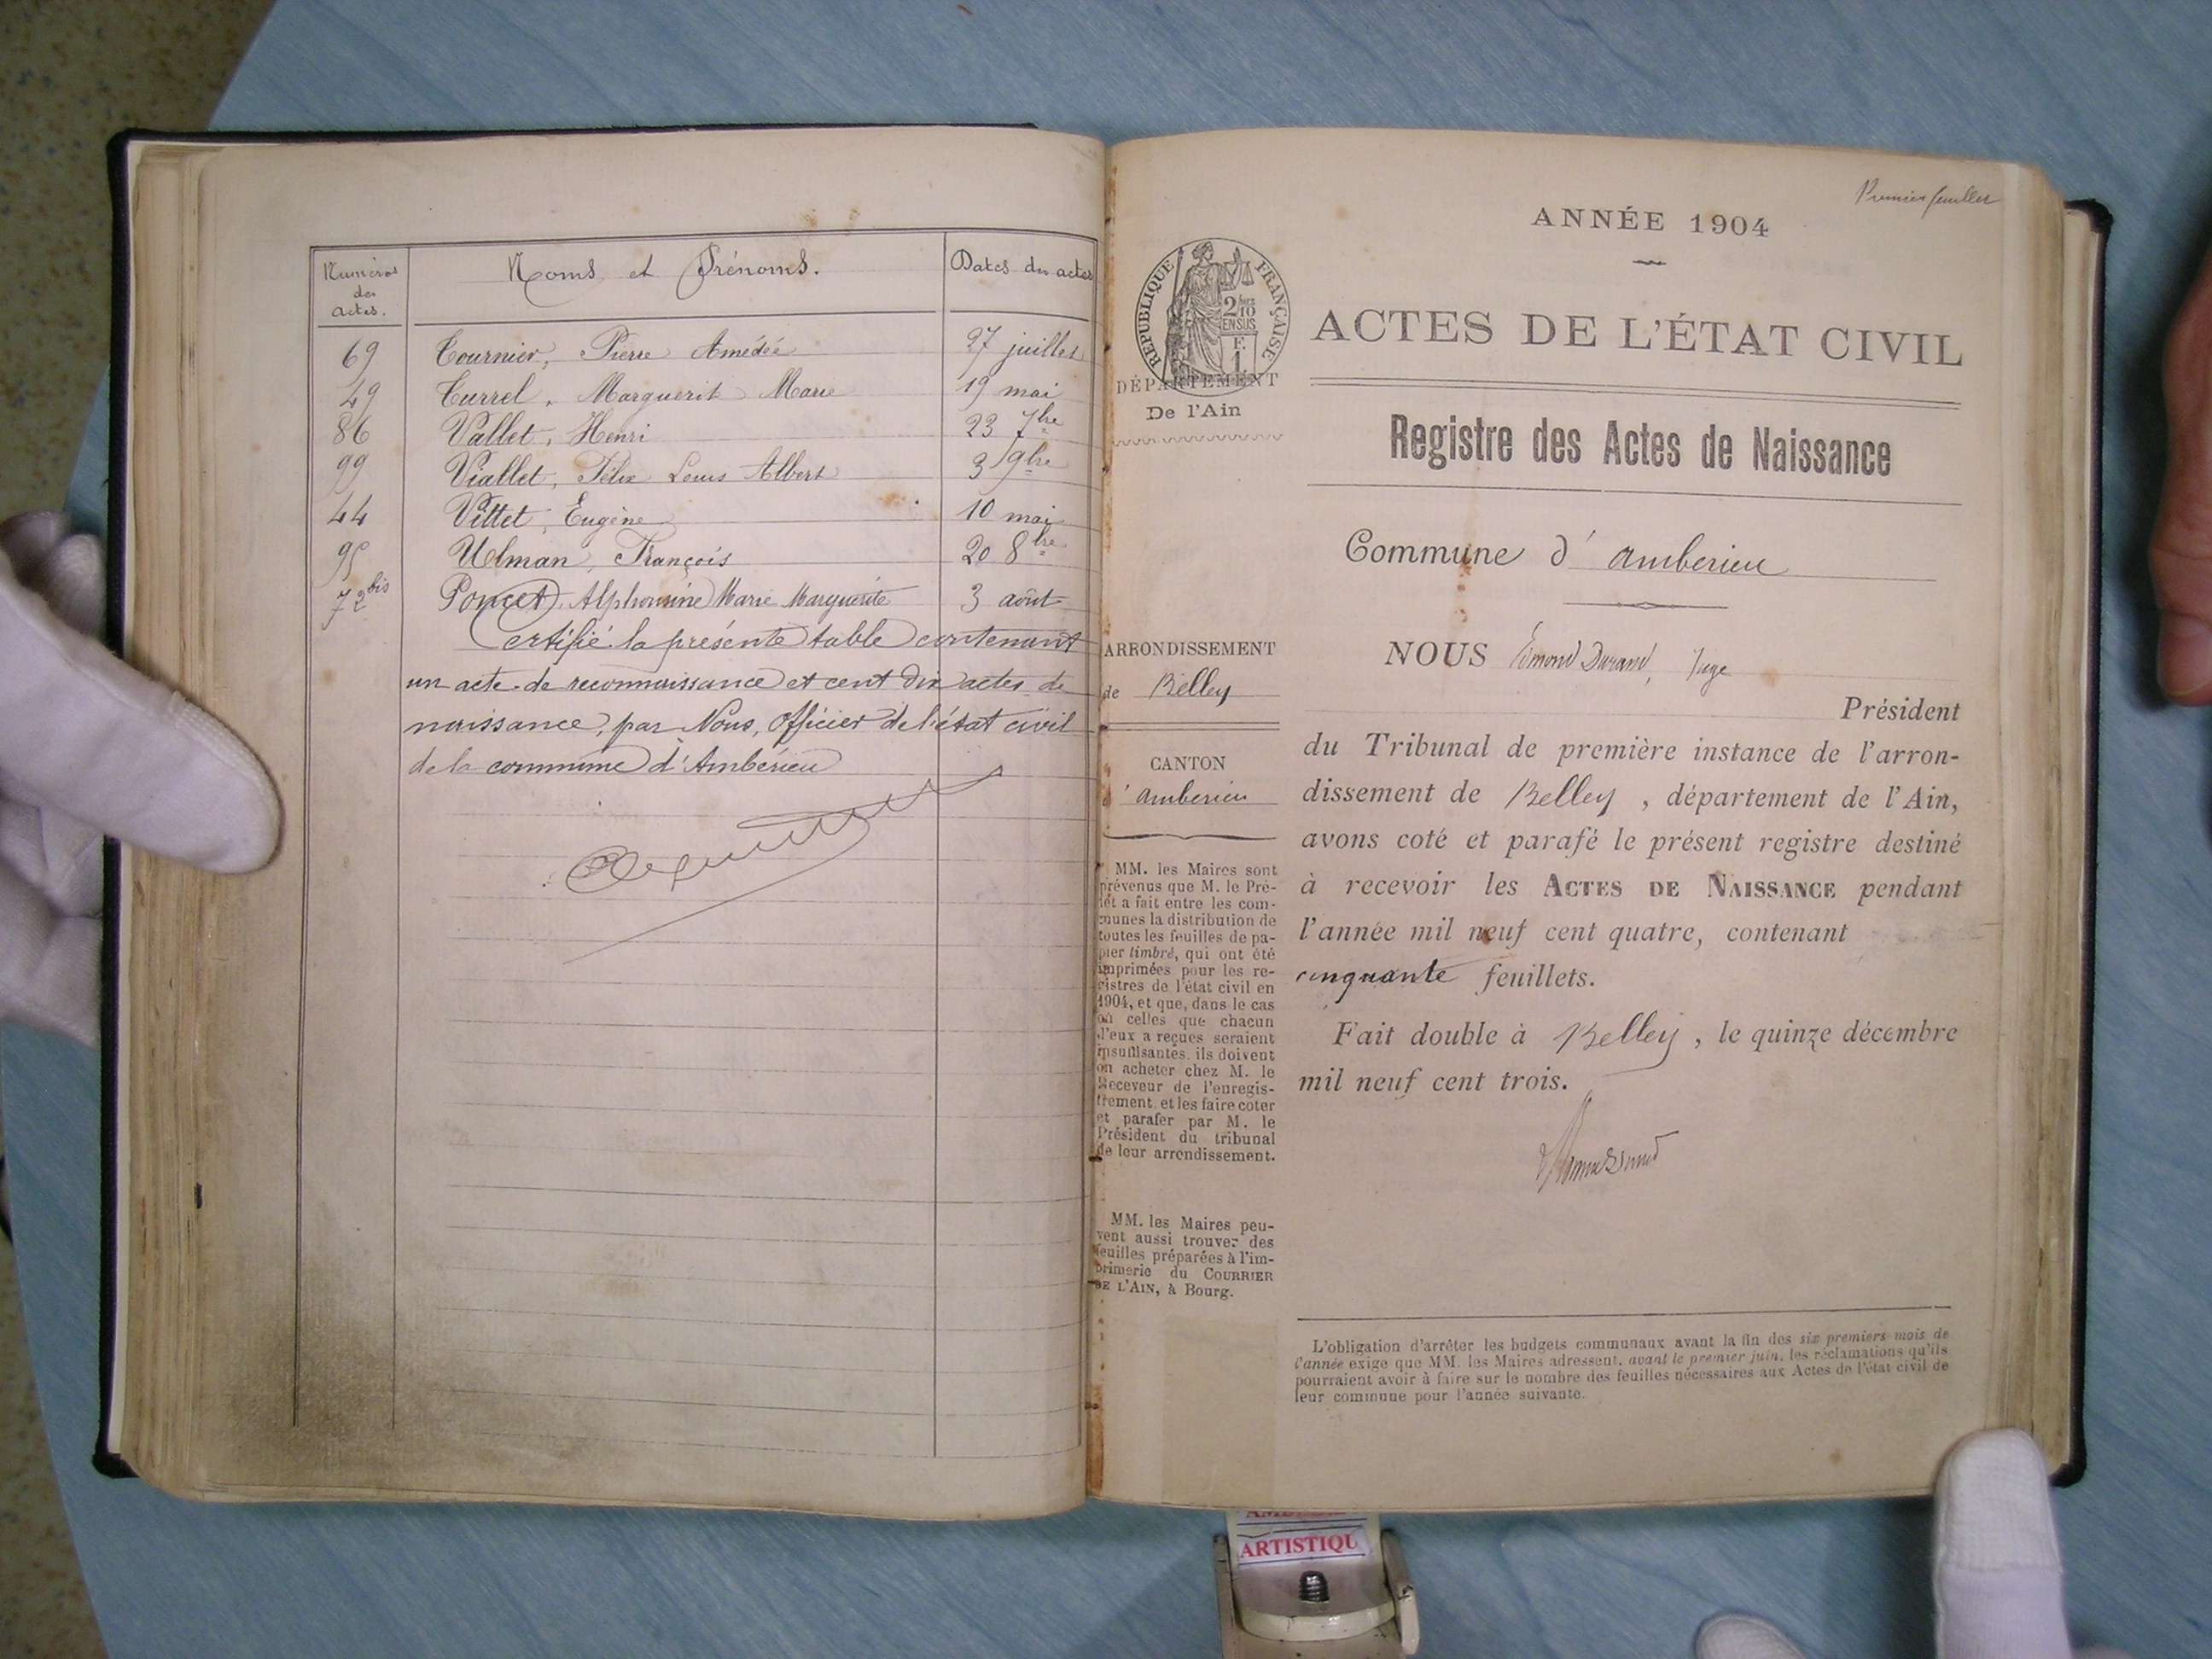 Numéros des actes. Noms et Prénoms. Dates des actes
69 Tournier, Pierre Amédée 27 juillet
49 Turrel, Marguerite Marie 19 mai
86 Vallet, Henri 23 7bre
99 Viallet, Félix Louis Albert 3 9bre
44 Vittet, Eugène 10 mai
95 Ulman, François 20 8bre
72 bis Poncet, Alphonsine Marie Marguerite 3 août
Certifié la présente table contenant
un acte de reconnaissance et cent dix actes de
naissance, par Nous, Officier de l'état civil
de la commune d'Ambérieu
Premier feuillet
ANNÉE 1904
RÉPUBLIQUE FRANÇAISE
2/10
EN SUS
F.
1
ACTES DE L'ÉTAT CIVIL
DÉPARTEMENT
De l'Ain
Registre des Actes de Naissance
Commune d'amberieu
ARRONDISSEMENT
de Belley
CANTON
d'amberieu
MM. les Maires sont
prévenus que M. le Pré-
fet a fait entre les com-
munes la distribution de
toutes les feuilles de pa-
pier timbré, qui ont été
imprimées pour les re-
gistres de l'état civil en
1904, et que, dans le cas
où celles que chacun
d'eux a reçues seraient
insuffisantes, ils doivent
en acheter chez M. le
Receveur de l'enregis-
trement, et les faire coter
et parafer par M. le
Président du tribunal
de leur arrondissement.
MM. les Maires peu-
vent aussi trouver des
feuilles préparées à l'im-
primerie du COURRIER
DE L'AIN, à Bourg.
NOUS Edmond Durand, Juge
Président
du Tribunal de première instance de l'arron-
dissement de Belley, département de l'Ain,
avons coté et parafé le présent registre destiné
à recevoir les ACTES DE NAISSANCE pendant
l'année mil neuf cent quatre, contenant
cinquante feuillets.
Fait double à Belley, le quinze décembre
mil neuf cent trois.
L'obligation d'arrêter les budgets communaux avant la fin des six premiers mois de
l'année exige que MM. les Maires adressent, avant le premier juin, les réclamations qu'ils
pourraient avoir à faire sur le nombre des feuilles nécessaires aux Actes de l'état civil de
leur commune pour l'année suivante.
ARTISTIQU